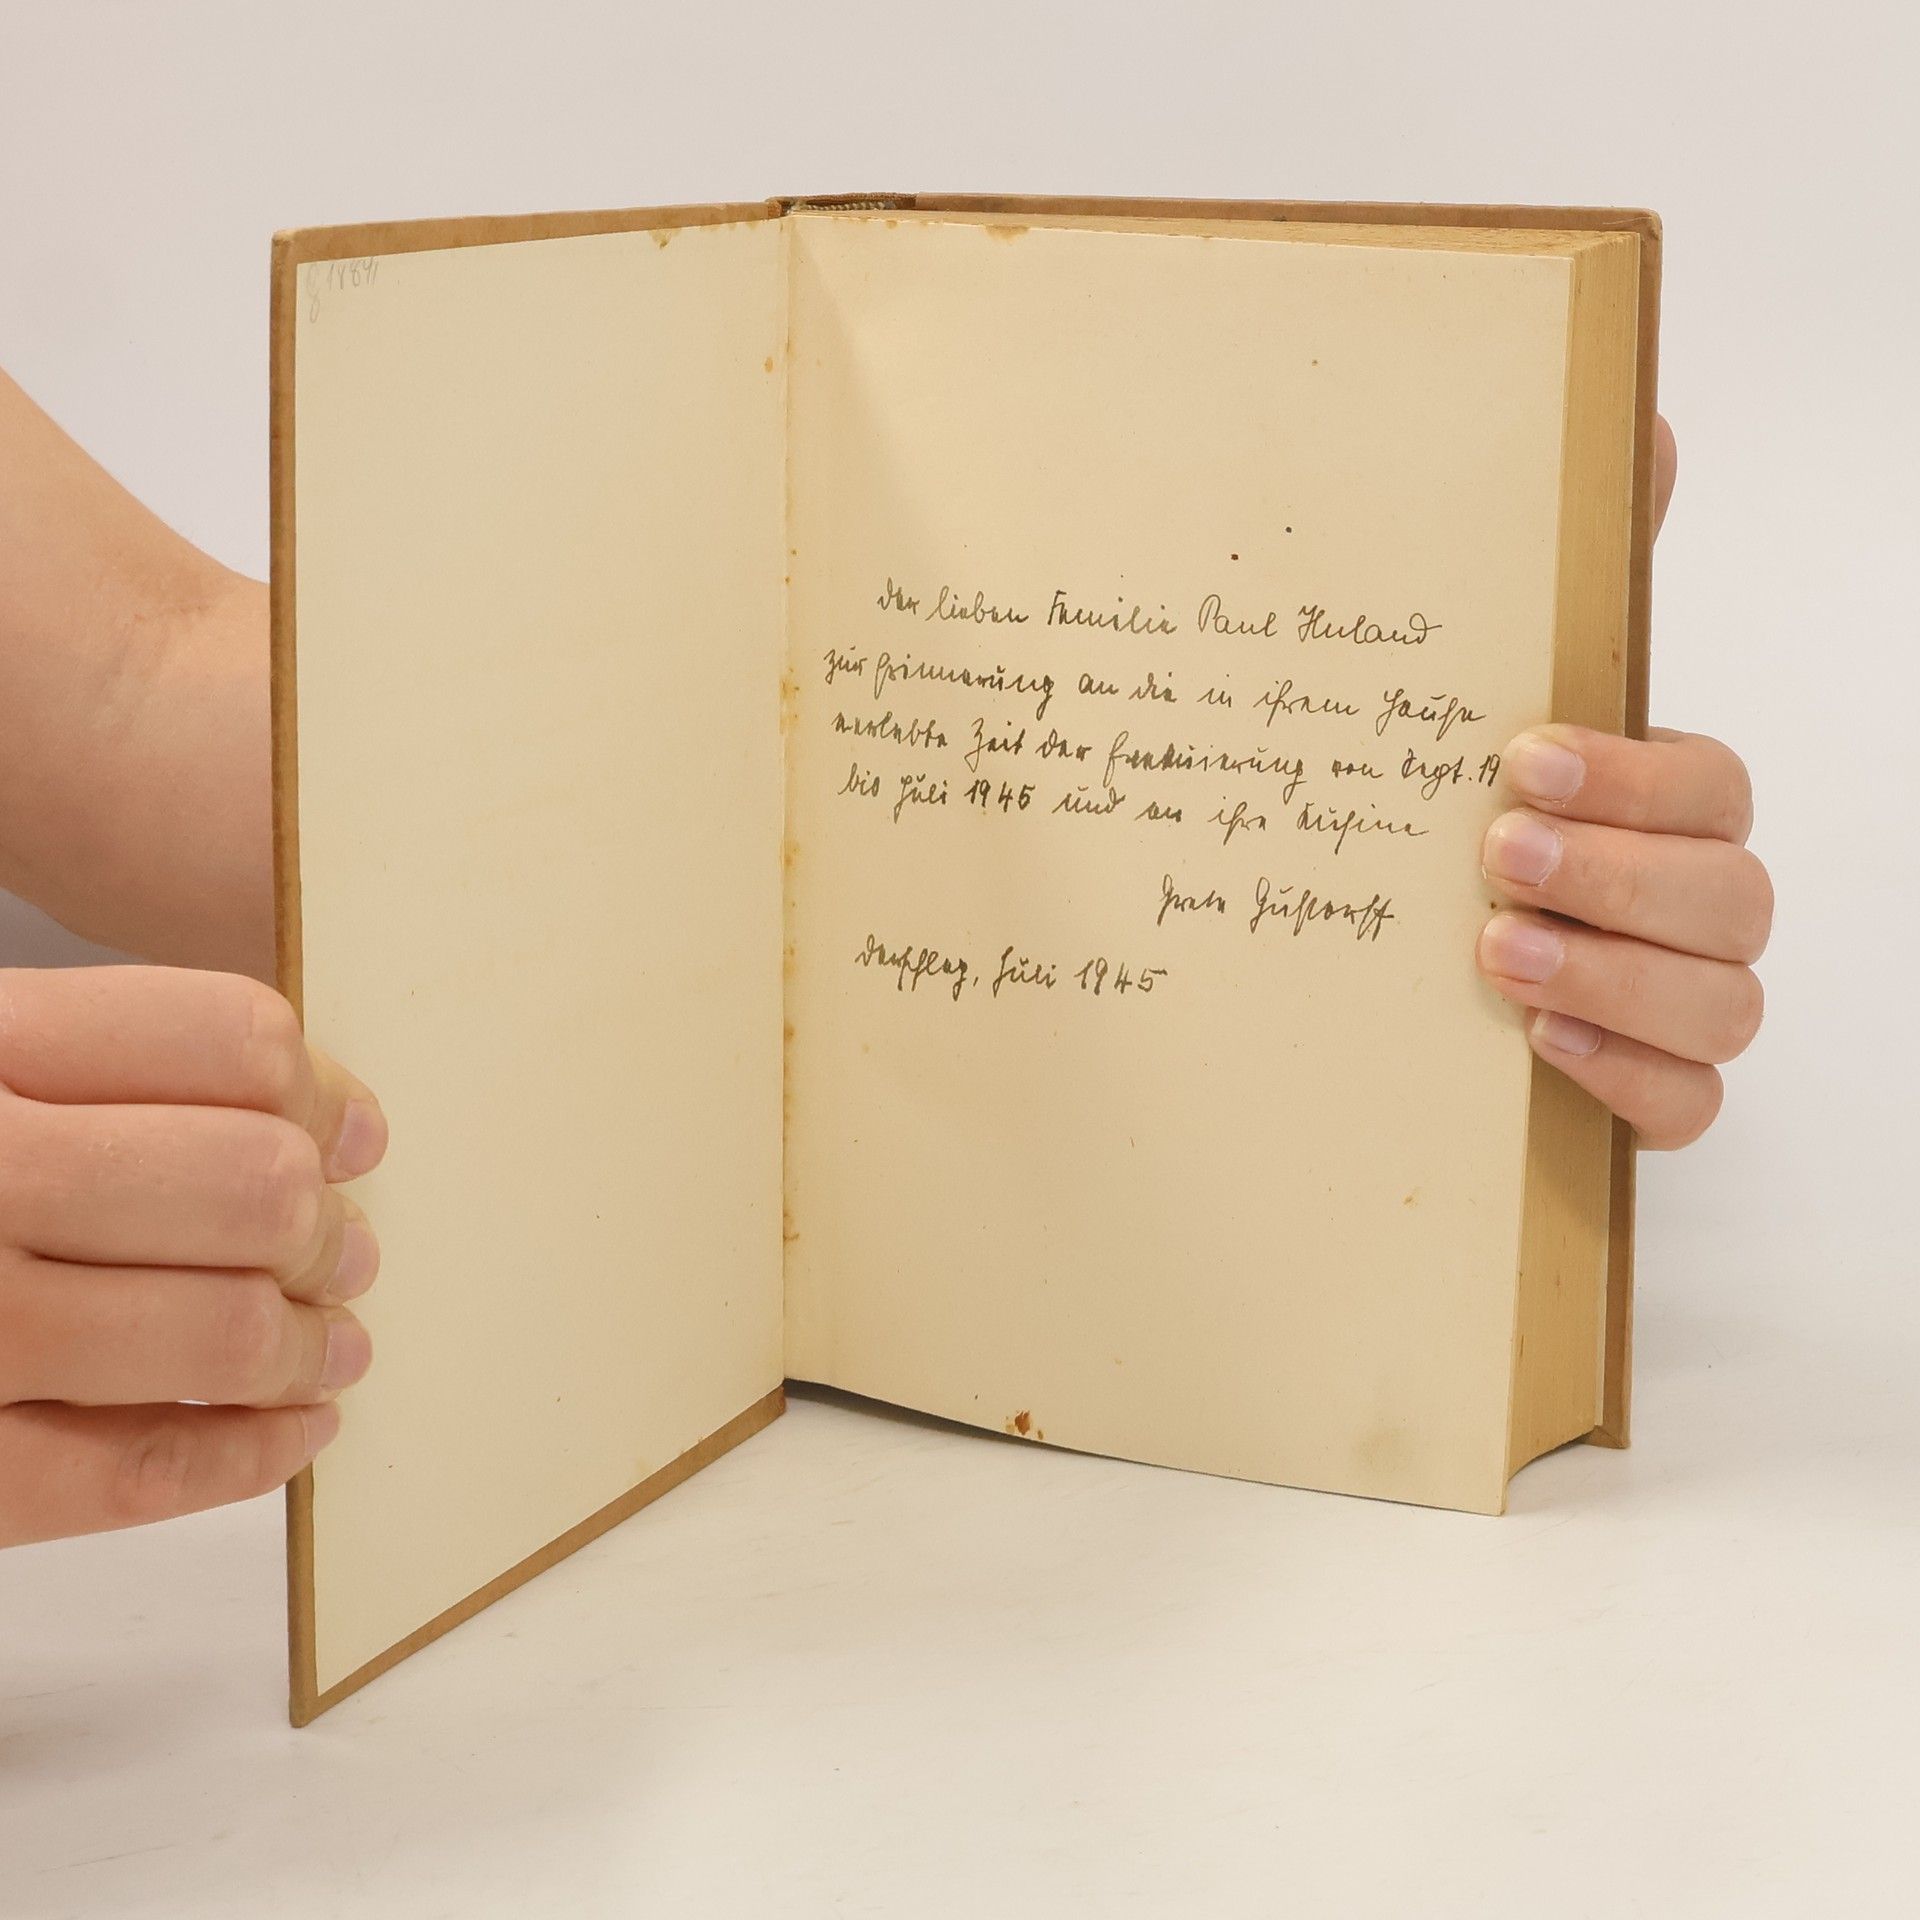 der lieben Familie Paul Huland
zur Erinnerung an die in ihrem Hause
verlebte Zeit der Evakuierung von Sept. 19
bis Juli 1945 und an ihre Kusine
Grete Gustorff
Derschlag, Juli 1945